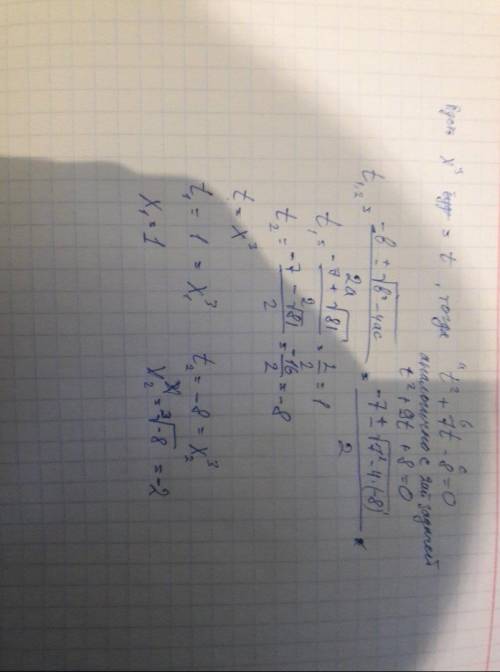 Пусть x³ = t, тогда t² + 7t - 8 = 0
аналогично с 2ой задачей
t² + 9t + 8 = 0
t₁,₂ = -b ± √b² - 4ac / 2a = -7 ± √7² - 4·(-8) / 2
t₁ = -7 + √81 / 2 = 2 / 2 = 1
t₂ = -7 - √81 / 2 = -16 / 2 = -8
t = x³
t₁ = 1 = x₁³ t₂ = -8 = x₂³
x₁ = 1 x₂ = ³√-8 = -2